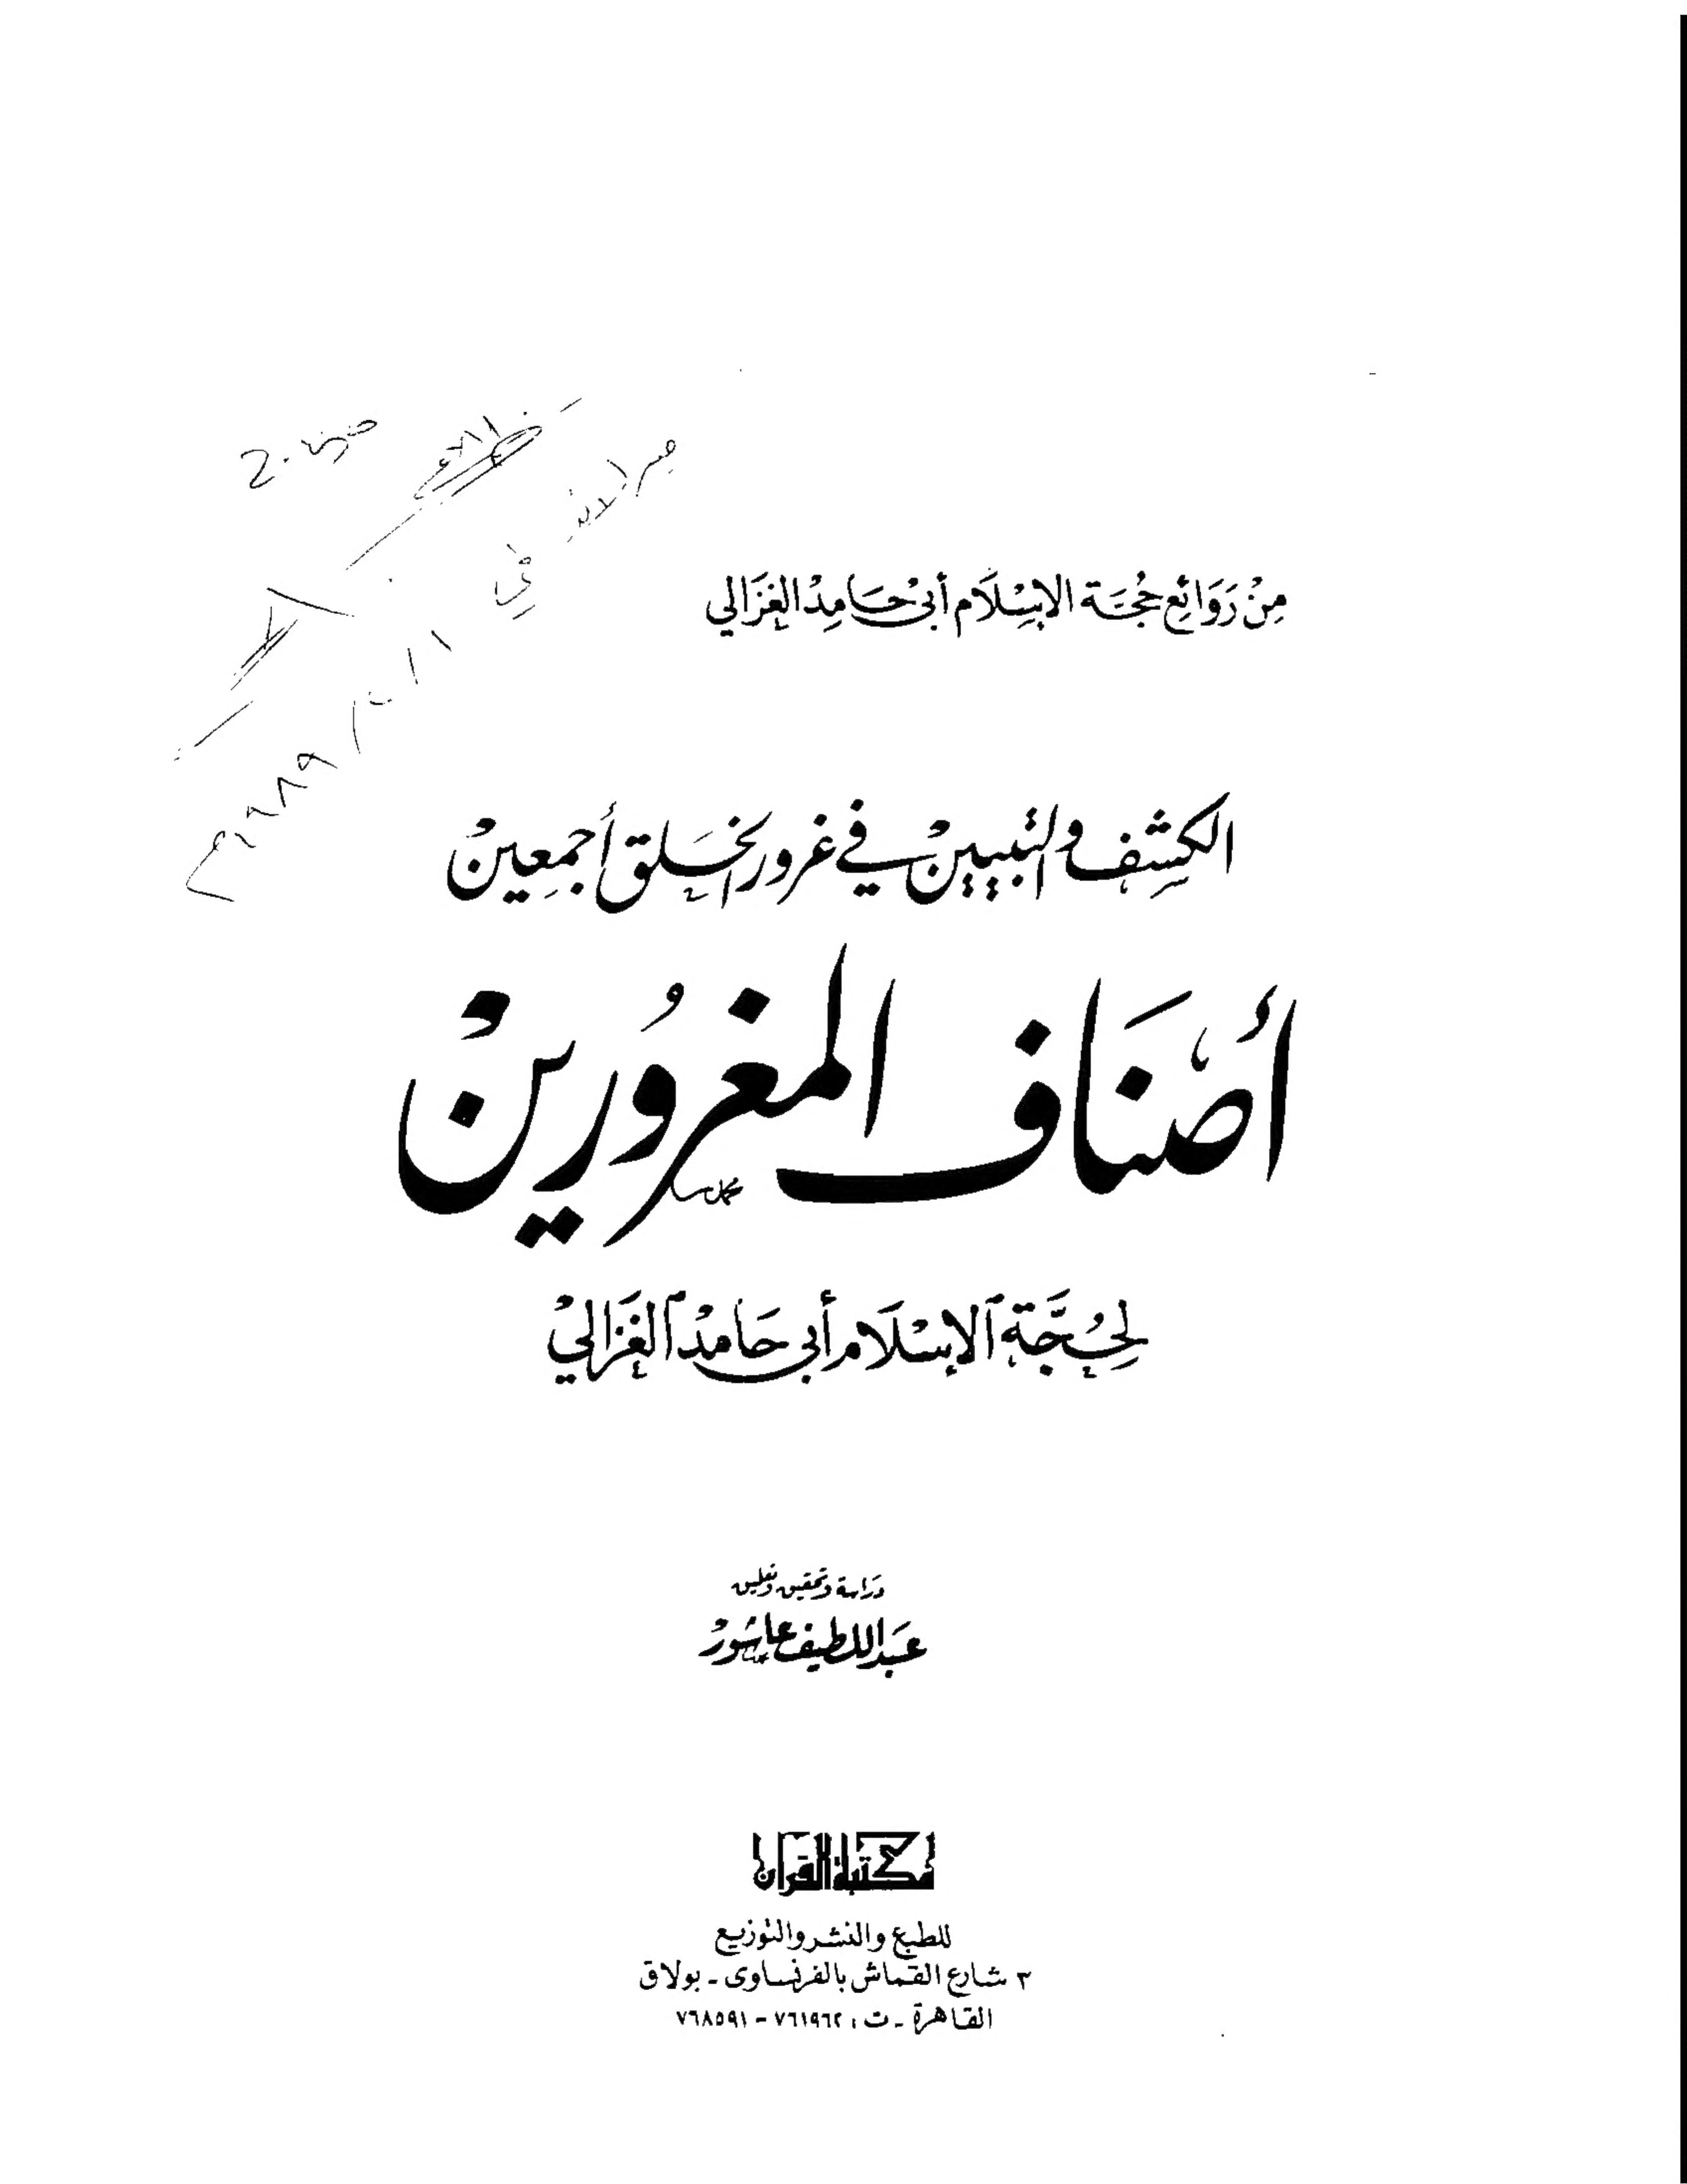 مِنْ رَوَائِع حُجَّة الإِسْلَام أَبِي حَامِدْ الغَزَالي
الكشِف والتبيينْ في غرور الخَلق أجمعِينْ
أصْنَاف المغرُورينْ
لِحُجَّة الإسْلَام أبي حَامدْ الغَزَاليْ
دراسة وتحقيق وتعليق
عَبد اللطيف عاشورْ
مكتبة القرآن
للطبع والنشر والتوزيع
٣ شارع القماش بالفرنساوى - بولاق
القاهرة - ت : ٧٦١٩٦٢ - ٧٦٨٥٩١